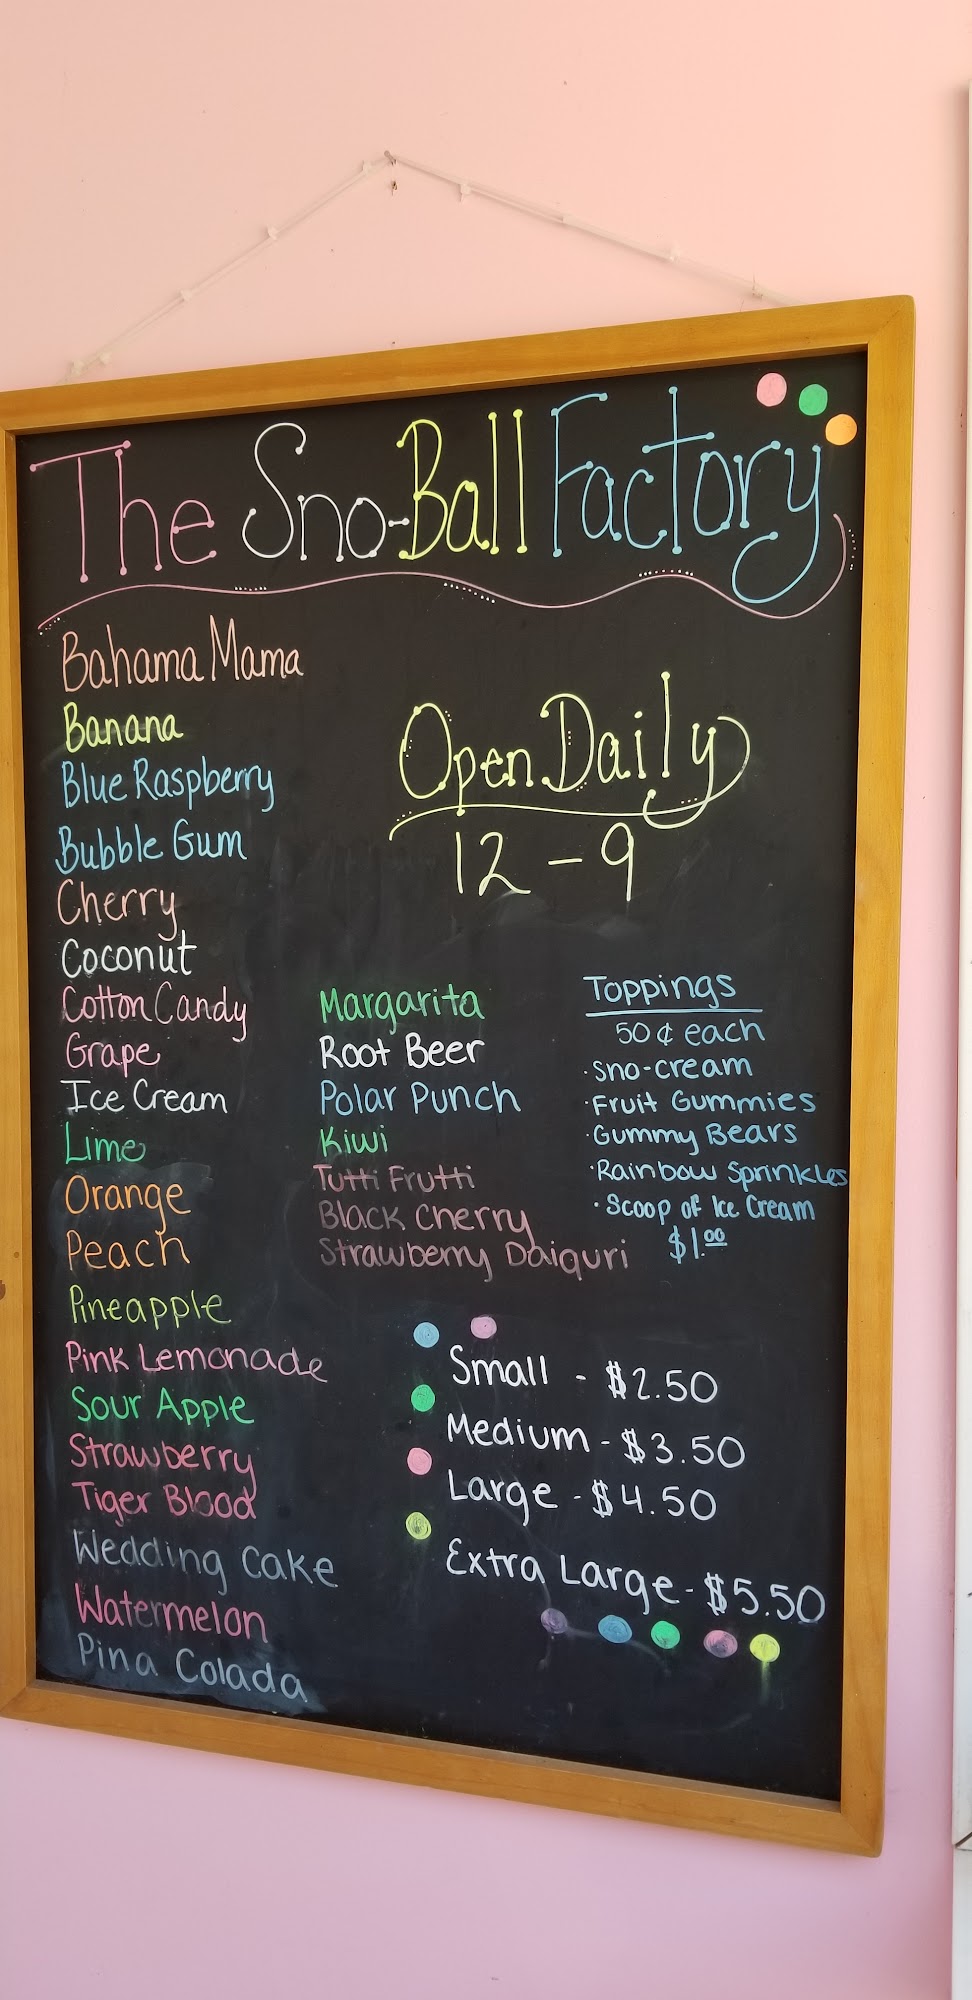 The Sno-Ball Factory
Bahama Mama
Banana
Blue Raspberry
Bubble Gum
Cherry
Coconut
Cotton Candy
Grape
Ice Cream
Lime
Orange
Peach
Pineapple
Pink Lemonade
Sour Apple
Strawberry
Tiger Blood
Wedding Cake
Watermelon
Pina Colada
Open Daily
12 - 9
Margarita
Root Beer
Polar Punch
Kiwi
Tutti Frutti
Black Cherry
Strawberry Daiquri
Toppings
50¢ each
· Sno-cream
· Fruit Gummies
· Gummy Bears
· Rainbow Sprinkles
· Scoop of Ice Cream
$1.00
Small - $2.50
Medium - $3.50
Large - $4.50
Extra Large - $5.50